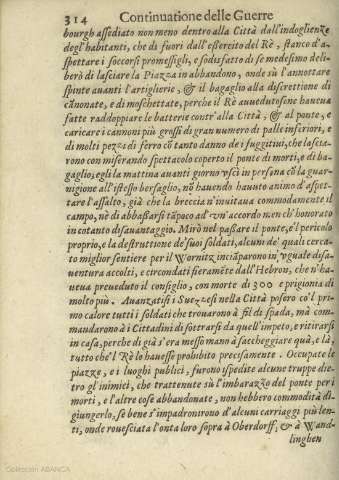 314 Continuatione delle Guerre
bourgh assediato non meno dentro alla Città dall'indoglienze
degl'habitanti, che di fuori dall'essercito del Rè, stanco d'a-
spettare i soccorsi promessigli, e sodisfatto di se medesimo deli-
berò di lasciare la Piazza in abbandono, onde sù l'annottare
spinte auanti l'artiglierie, & il bagaglio alla discrettione di
cãnonate, e di moschettate, perche il Rè auuedutosene haueua
fatte raddoppiare le batterie contr'alla Città, & al ponte, e
caricare i cannoni più grossi di gran numero di palle inferiori, e
di molti pezzi di ferro cõ tanto danno de i fuggitiui, che lascia-
rono con miserando spettacolo coperto il ponte di morti, e di ba-
gaglio; egli la mattina auanti giorno vscì in persena cõ la guar-
nigione all'istesso bersaglio, nõ hauendo hauuto animo d'aspet-
tare l'assalto, già che la breccia n'inuitaua commodamente il
campo, nè di abbassarsi tãpoco ad'vn'accordo men ch'honorato
in cotanto disauantaggio. Mirò nel passare il ponte, e'l pericolo
proprio, e la destruttione de'suoi soldati, alcuni de' quali cerca-
to miglior sentiere per il Wornitz inciãparono in vguale disa-
uentura accolti, e circondati fieramẽte dall'Hebron, che n'ha-
ueua preueduto il consiglio, con morte di 300 e prigionia di
molto più. Auanzatisi i Suezzesi nella Città posero co'l pri-
mo calore tutti i soldati che trouarono à fil di spada, mà com-
mandarono à i Cittadini di sottrarsi da quell'impeto, e ritirarsi
in casa, perche di già s'era messo mano à saccheggiare quà, e là,
tutto che'l Rè lo hauesse prohibito precisamente. Occupate le
piazze, e i luoghi publici, furono spedite alcune truppe die-
tro gl'inimici, che trattenute sù l'imbarazzo del ponte per i
morti, e l'altre cose abbandonate, non hebbero commodità di-
giungerlo, se bene s'impadronirono d'alcuni carriaggi più len-
ti, onde rouesciata l'onta loro sopra à Oberdorff, & à Wand-
linghen
Colección ABANCA